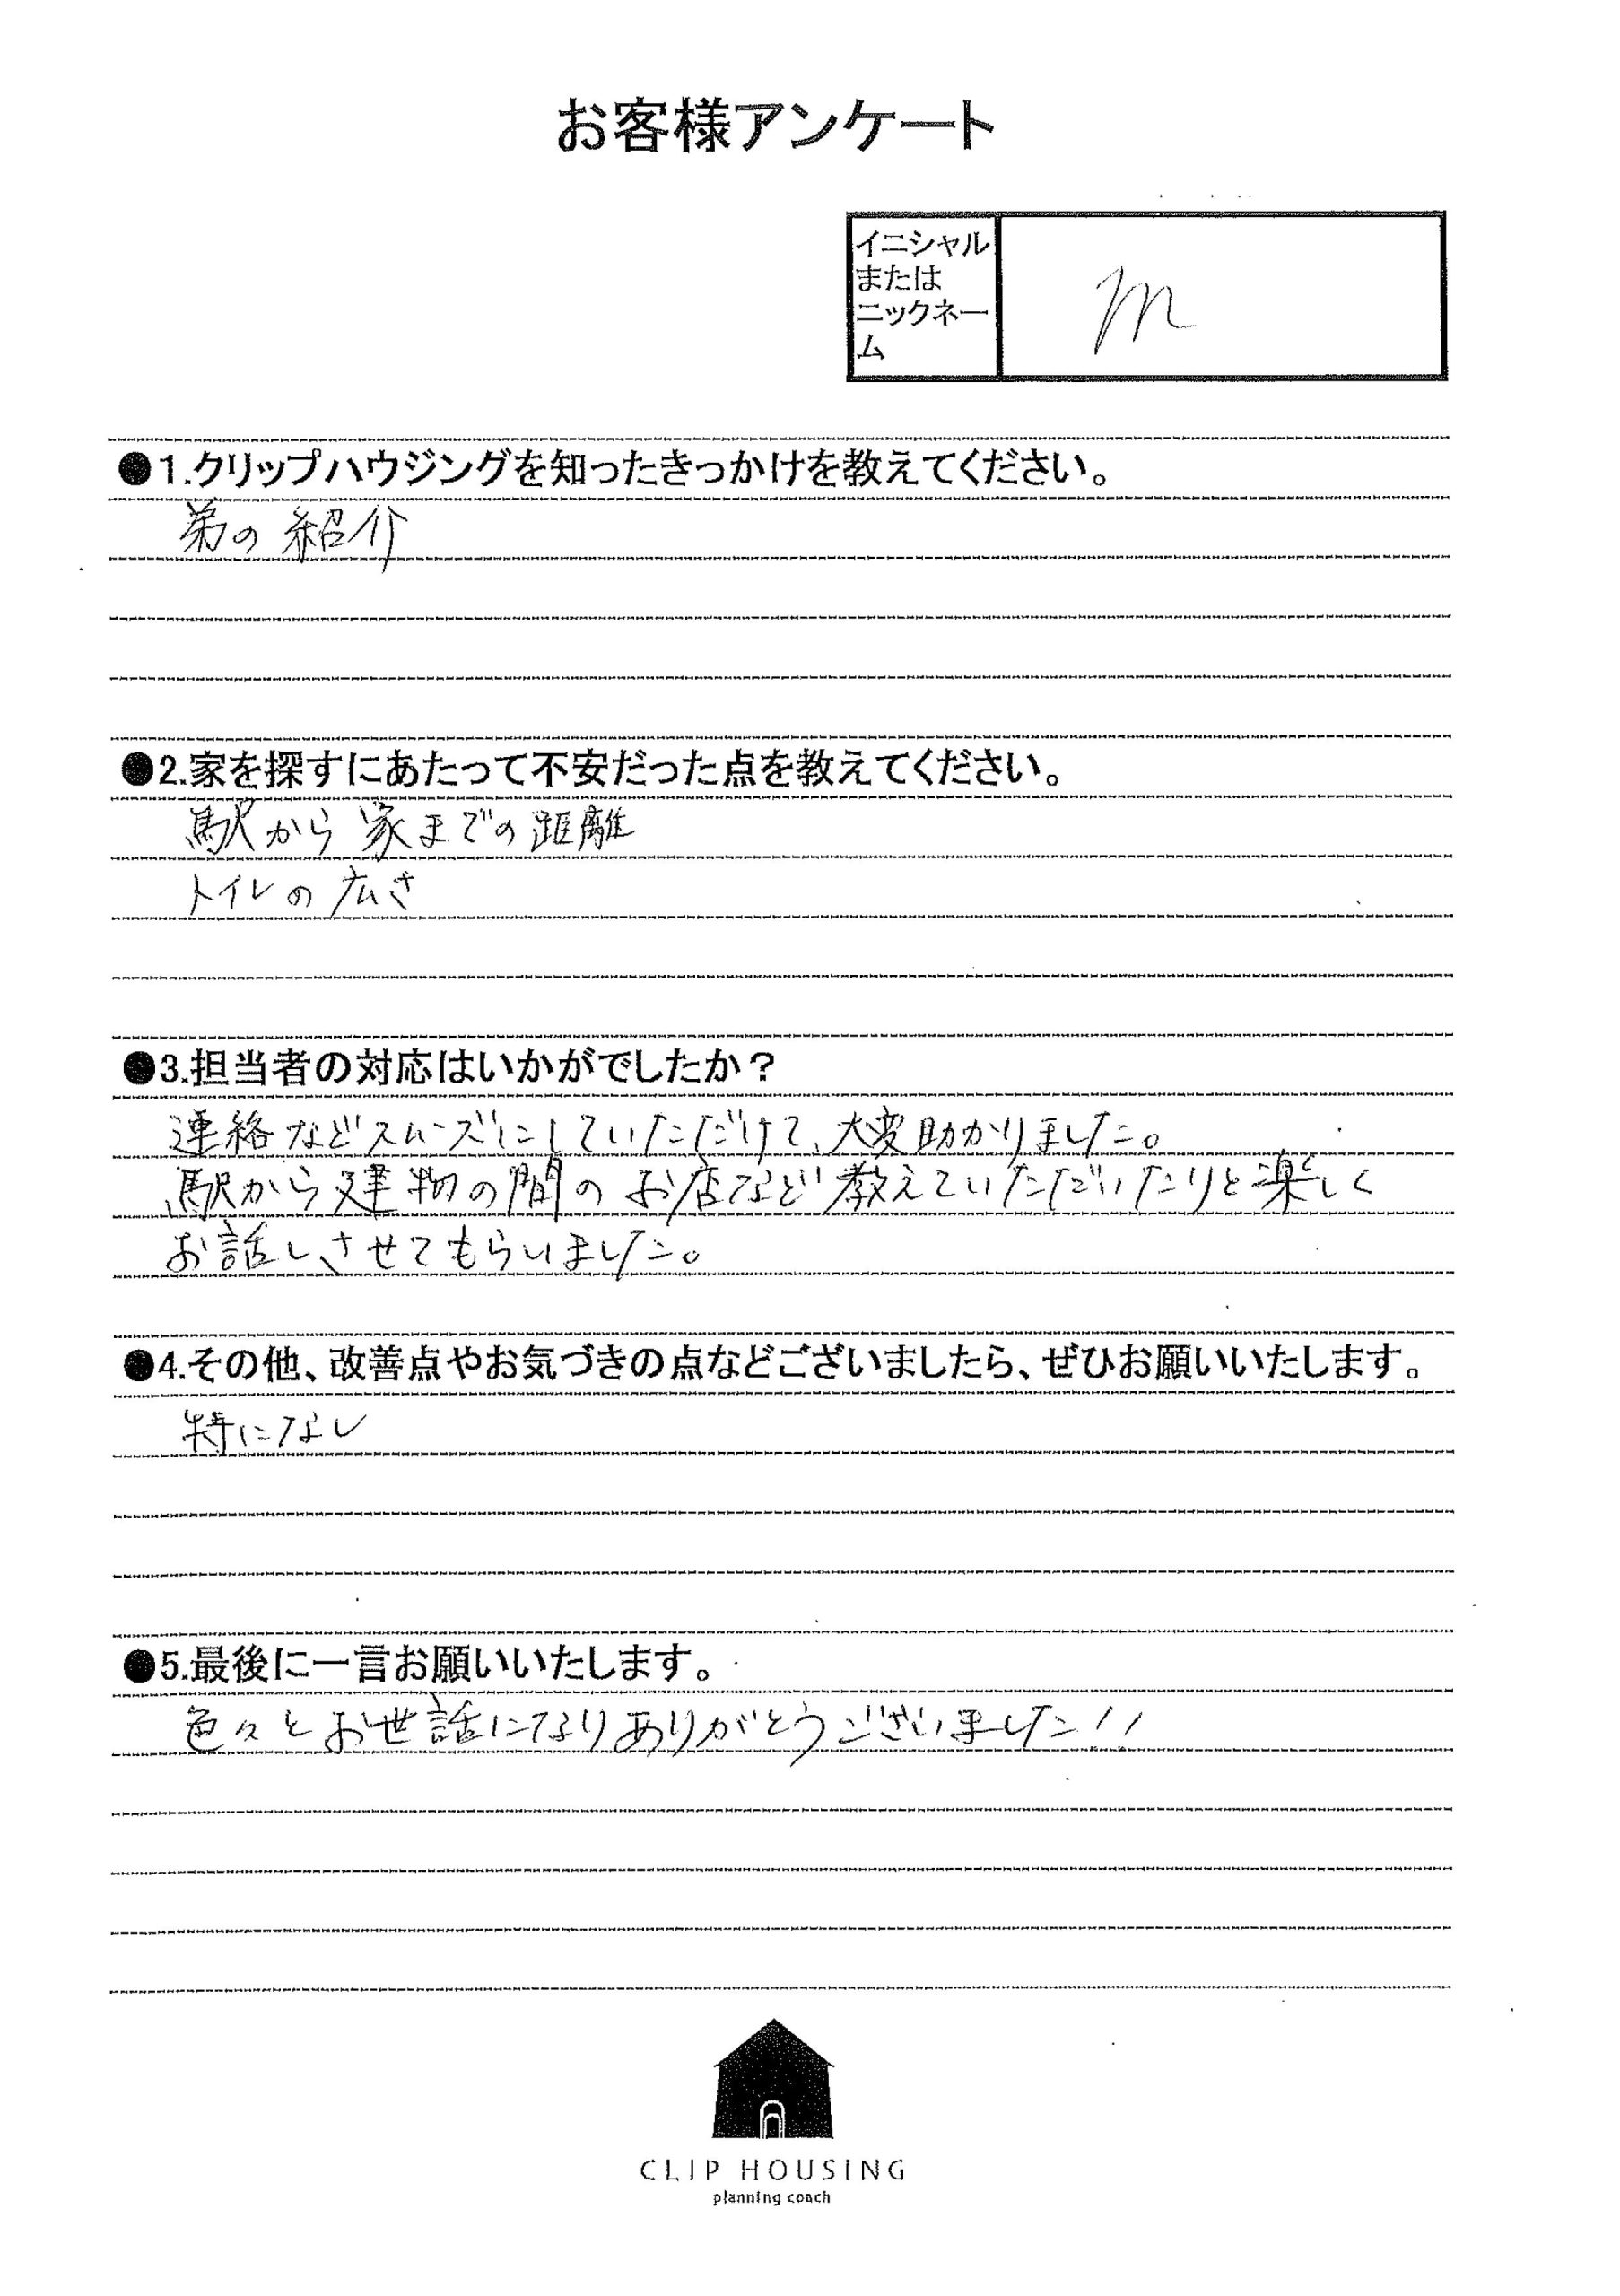 お客様アンケート
イニシャル
または
ニックネー
ム
m
●1.クリップハウジングを知ったきっかけを教えてください。
弟の紹介
●2.家を探すにあたって不安だった点を教えてください。
駅から家までの距離
トイレの広さ
●3.担当者の対応はいかがでしたか？
連絡などスムーズにしていただけて、大変助かりました。
駅から建物の間のお店など教えていただいたりと楽しく
お話しさせてもらいました。
●4.その他、改善点やお気づきの点などございましたら、ぜひお願いいたします。
特になし
●5.最後に一言お願いいたします。
色々とお世話になりありがとうございました!!
CLIP HOUSING
planning coach